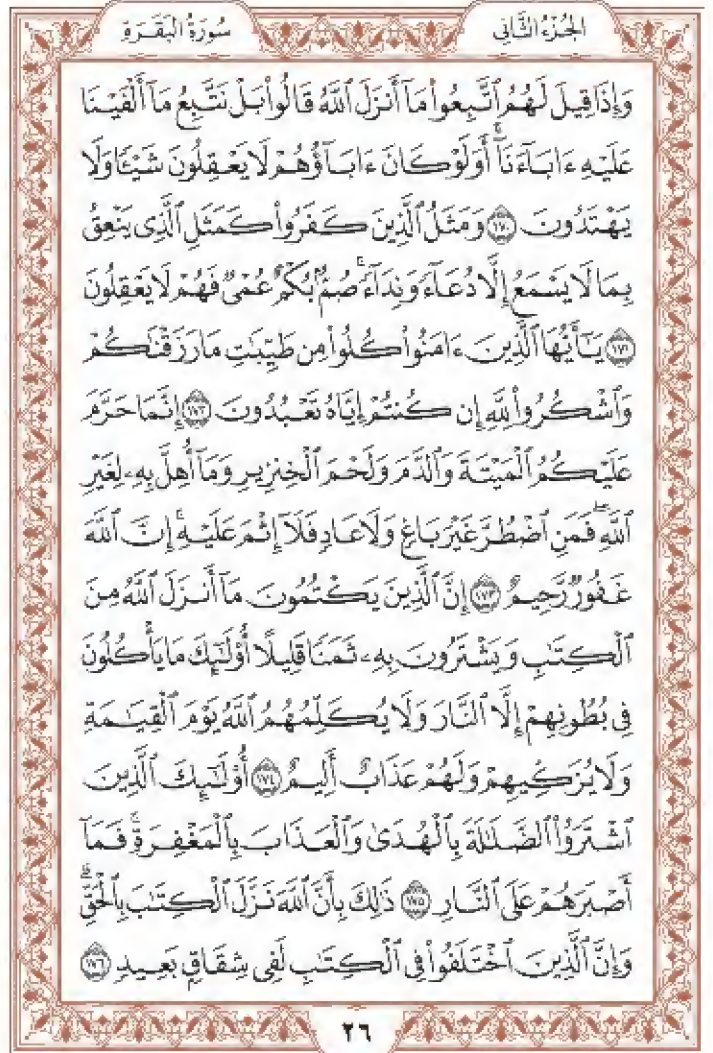 الجُزْءُ الثَّانِي
سُورَةُ الْبَقَرَةِ
وَإِذَا قِيلَ لَهُمُ ٱتَّبِعُوا۟ مَآ أَنزَلَ ٱللَّهُ قَالُوا۟ بَلْ نَتَّبِعُ مَآ أَلْفَيْنَا
عَلَيْهِ ءَابَآءَنَآ ۗ أَوَلَوْ كَانَ ءَابَآؤُهُمْ لَا يَعْقِلُونَ شَيْـًٔا وَلَا
يَهْتَدُونَ ١٧٠ وَمَثَلُ ٱلَّذِينَ كَفَرُوا۟ كَمَثَلِ ٱلَّذِى يَنْعِقُ
بِمَا لَا يَسْمَعُ إِلَّا دُعَآءً وَنِدَآءً ۚ صُمٌّۢ بُكْمٌ عُمْىٌ فَهُمْ لَا يَعْقِلُونَ
١٧١ يَـٰٓأَيُّهَا ٱلَّذِينَ ءَامَنُوا۟ كُلُوا۟ مِن طَيِّبَـٰتِ مَا رَزَقْنَـٰكُمْ
وَٱشْكُرُوا۟ لِلَّهِ إِن كُنتُمْ إِيَّاهُ تَعْبُدُونَ ١٧٢ إِنَّمَا حَرَّمَ
عَلَيْكُمُ ٱلْمَيْتَةَ وَٱلدَّمَ وَلَحْمَ ٱلْخِنزِيرِ وَمَآ أُهِلَّ بِهِۦ لِغَيْرِ
ٱللَّهِ ۖ فَمَنِ ٱضْطُرَّ غَيْرَ بَاغٍ وَلَا عَادٍ فَلَآ إِثْمَ عَلَيْهِ ۚ إِنَّ ٱللَّهَ
غَفُورٌ رَّحِيمٌ ١٧٣ إِنَّ ٱلَّذِينَ يَكْتُمُونَ مَآ أَنزَلَ ٱللَّهُ مِنَ
ٱلْكِتَـٰبِ وَيَشْتَرُونَ بِهِۦ ثَمَنًا قَلِيلًا أُو۟لَـٰٓئِكَ مَا يَأْكُلُونَ
فِى بُطُونِهِمْ إِلَّا ٱلنَّارَ وَلَا يُكَلِّمُهُمُ ٱللَّهُ يَوْمَ ٱلْقِيَـٰمَةِ
وَلَا يُزَكِّيهِمْ وَلَهُمْ عَذَابٌ أَلِيمٌ ١٧٤ أُو۟لَـٰٓئِكَ ٱلَّذِينَ
ٱشْتَرَوُا۟ ٱلضَّلَـٰلَةَ بِٱلْهُدَىٰ وَٱلْعَذَابَ بِٱلْمَغْفِرَةِ ۚ فَمَآ
أَصْبَرَهُمْ عَلَى ٱلنَّارِ ١٧٥ ذَٰلِكَ بِأَنَّ ٱللَّهَ نَزَّلَ ٱلْكِتَـٰبَ بِٱلْحَقِّ ۗ
وَإِنَّ ٱلَّذِينَ ٱخْتَلَفُوا۟ فِى ٱلْكِتَـٰبِ لَفِى شِقَاقٍۭ بَعِيدٍ ١٧٦
٢٦